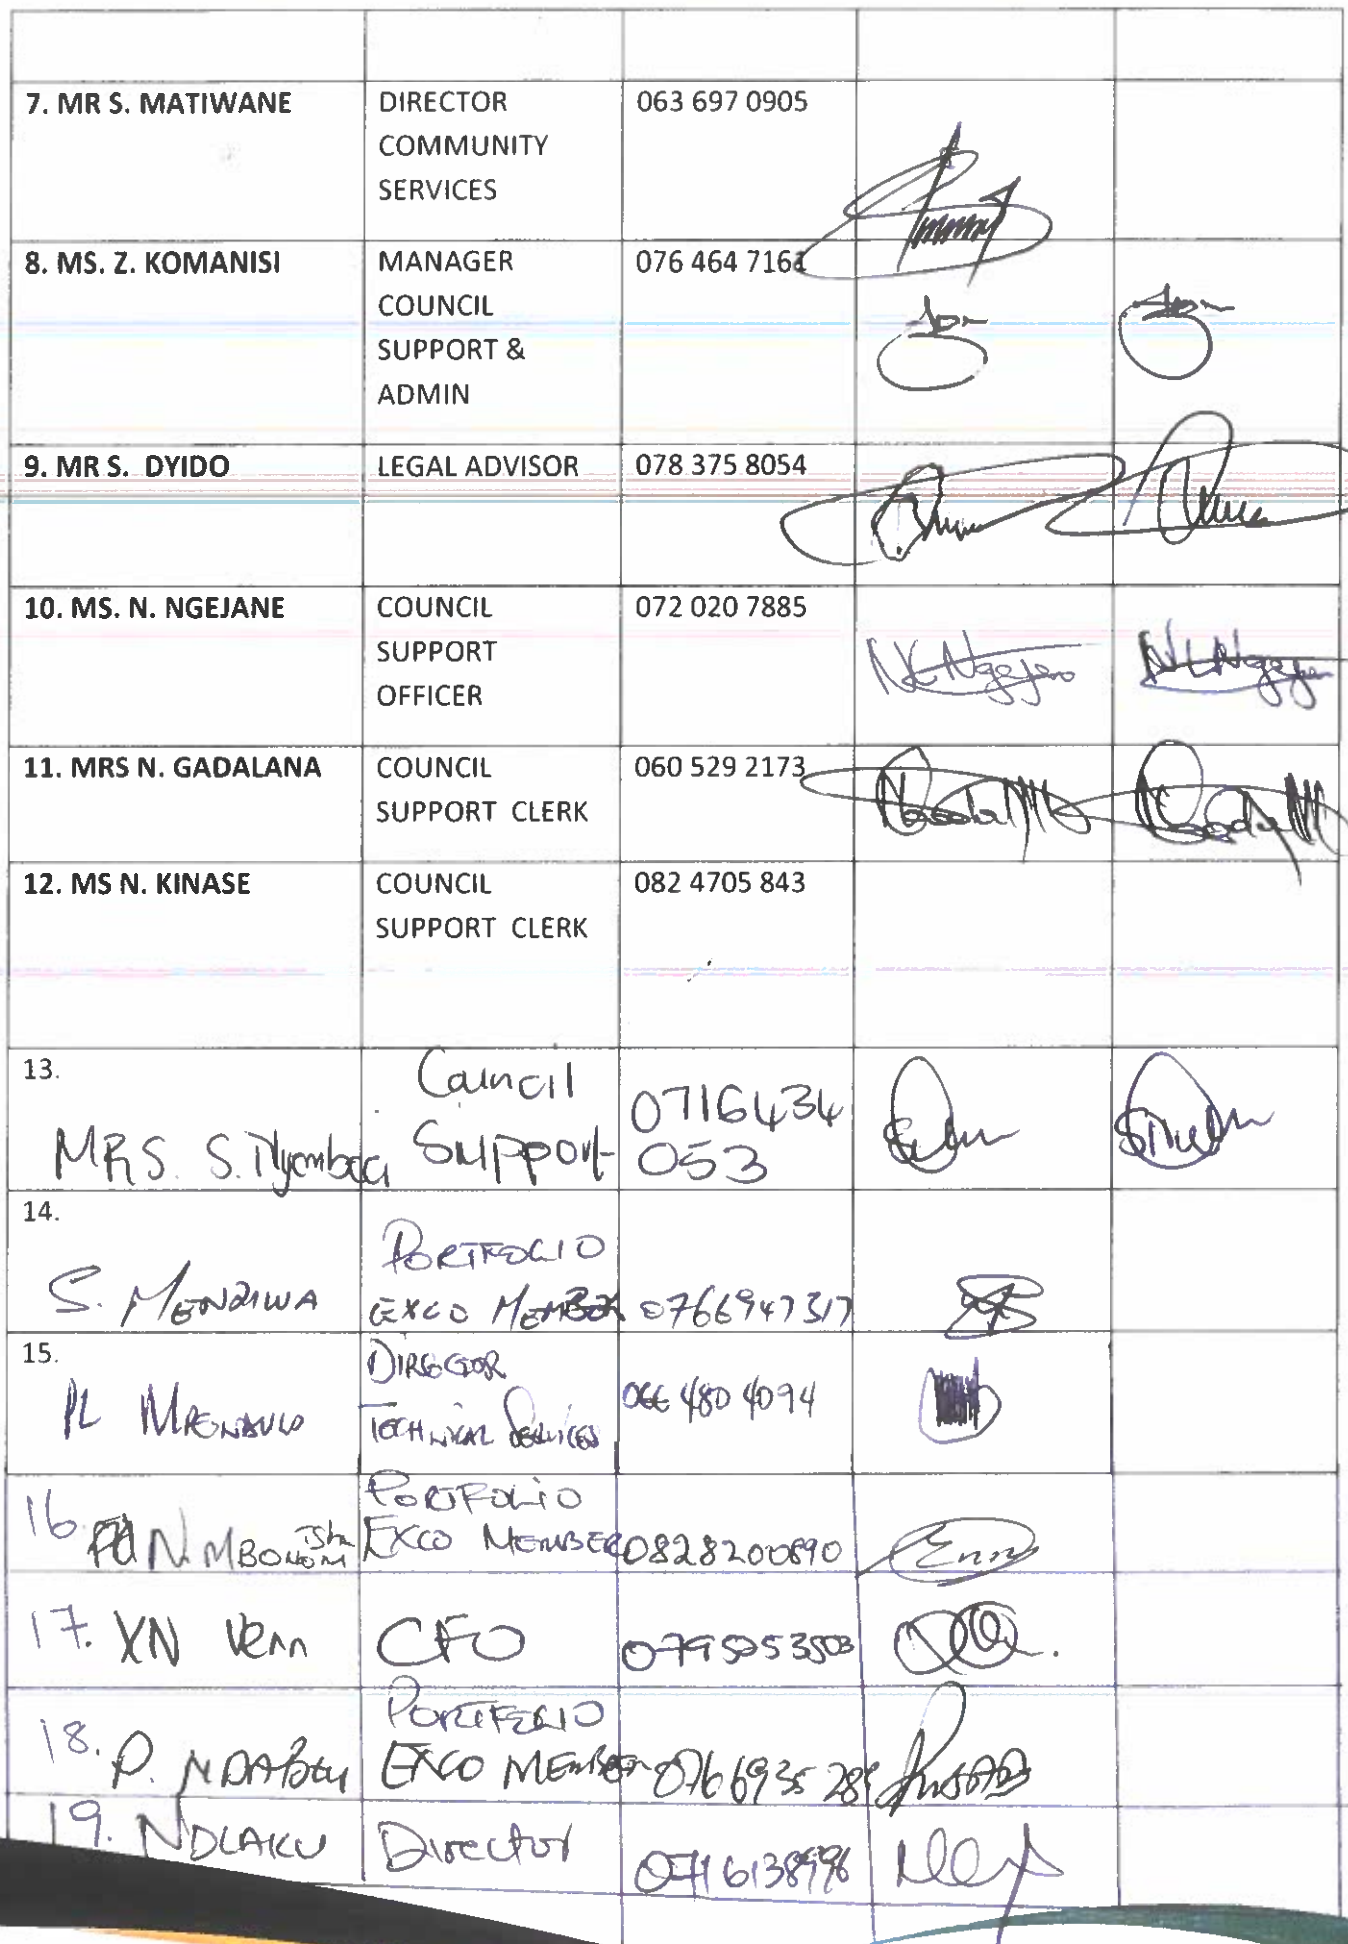 7. MR S. MATIWANE
DIRECTOR
COMMUNITY
SERVICES
063 697 0905
8. MS. Z. KOMANISI
MANAGER
COUNCIL
SUPPORT &
ADMIN
076 464 7161
9. MR S. DYIDO
LEGAL ADVISOR
078 375 8054
10. MS. N. NGEJANE
COUNCIL
SUPPORT
OFFICER
072 020 7885
11. MRS N. GADALANA
COUNCIL
SUPPORT CLERK
060 529 2173
12. MS N. KINASE
COUNCIL
SUPPORT CLERK
082 4705 843
13.
MRS. S.
Council
Support
0716434
053
14.
S. MENZIWA
PORTFOLIO
EXCO MEMBER
0766947317
15.
DIRECTOR
TECHNICAL SERVICES
066 480 4094
16.
N.
PORTFOLIO
EXCO MEMBER
0828200890
17. XN
CFO
18. P.
PORTFOLIO
EXCO MEMBER
19. NDLAKU
Director